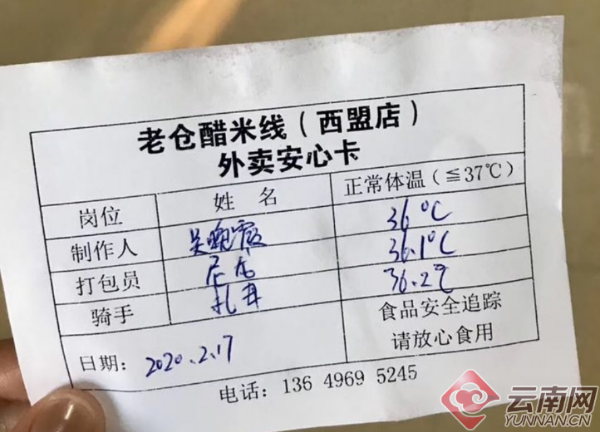 老仓醋米线（西盟店）
外卖安心卡
岗位 姓 名 正常体温（≦37℃）
制作人 吴晚霞 36℃
打包员 36.1℃
骑手 36.2℃
日期: 2020.2.17
食品安全追踪
请放心食用
电话: 136 4969 5245
云南网
YUNNAN.CN